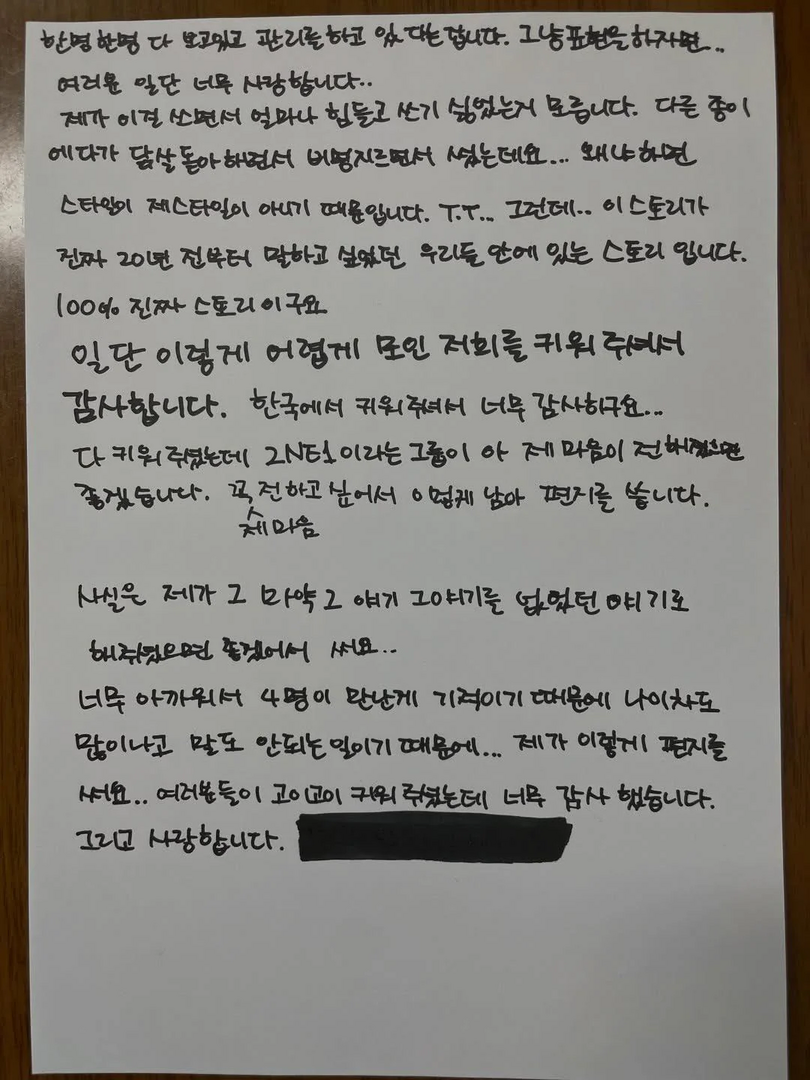 한명한명 다 보고있고 관리를하고 있다는겁니다. 그냥표현을하자면...
여러분 일단 너무 사랑합니다..
제가 이걸 쓰면서 얼마나 힘들고 쓰기 싫었는거 모릅니다. 다른 종이
에다가 닭살돋아하면서 비명지르면서 썼는데요... 왜냐하면
스타일이 제스타일이 아니기 때문입니다. T.T.. 그런데.. 이스토리가
진짜 20년 전부터 말하고 싶었던 우리들 안에 있는 스토리 입니다.
100% 진짜 스토리이구요
일단 이렇게 어렵게 모인 저희를 키워주셔서
감사합니다. 한국에서 키워주셔서 너무 감사하구요...
다 키워주셨는데 2NE1이라는 그룹이 아 제 마음이 전해졌으면
좋겠습니다. 꼭 전하고싶어서 이렇게 남아 편지를 씁니다.
제마음
사실은 제가 그 마약그 얘기 그얘기를 없었던 얘기로
해주셨으면 좋겠어서 써요..
너무 아까워서 4명이 만난게 기적이기 때문에 나이차도
많이나고 말도 안되는일이기 때문에... 제가 이렇게 편지를
써요.. 여러분들이 고이고이 키워주셨는데 너무 감사했습니다.
그리고 사랑합니다.